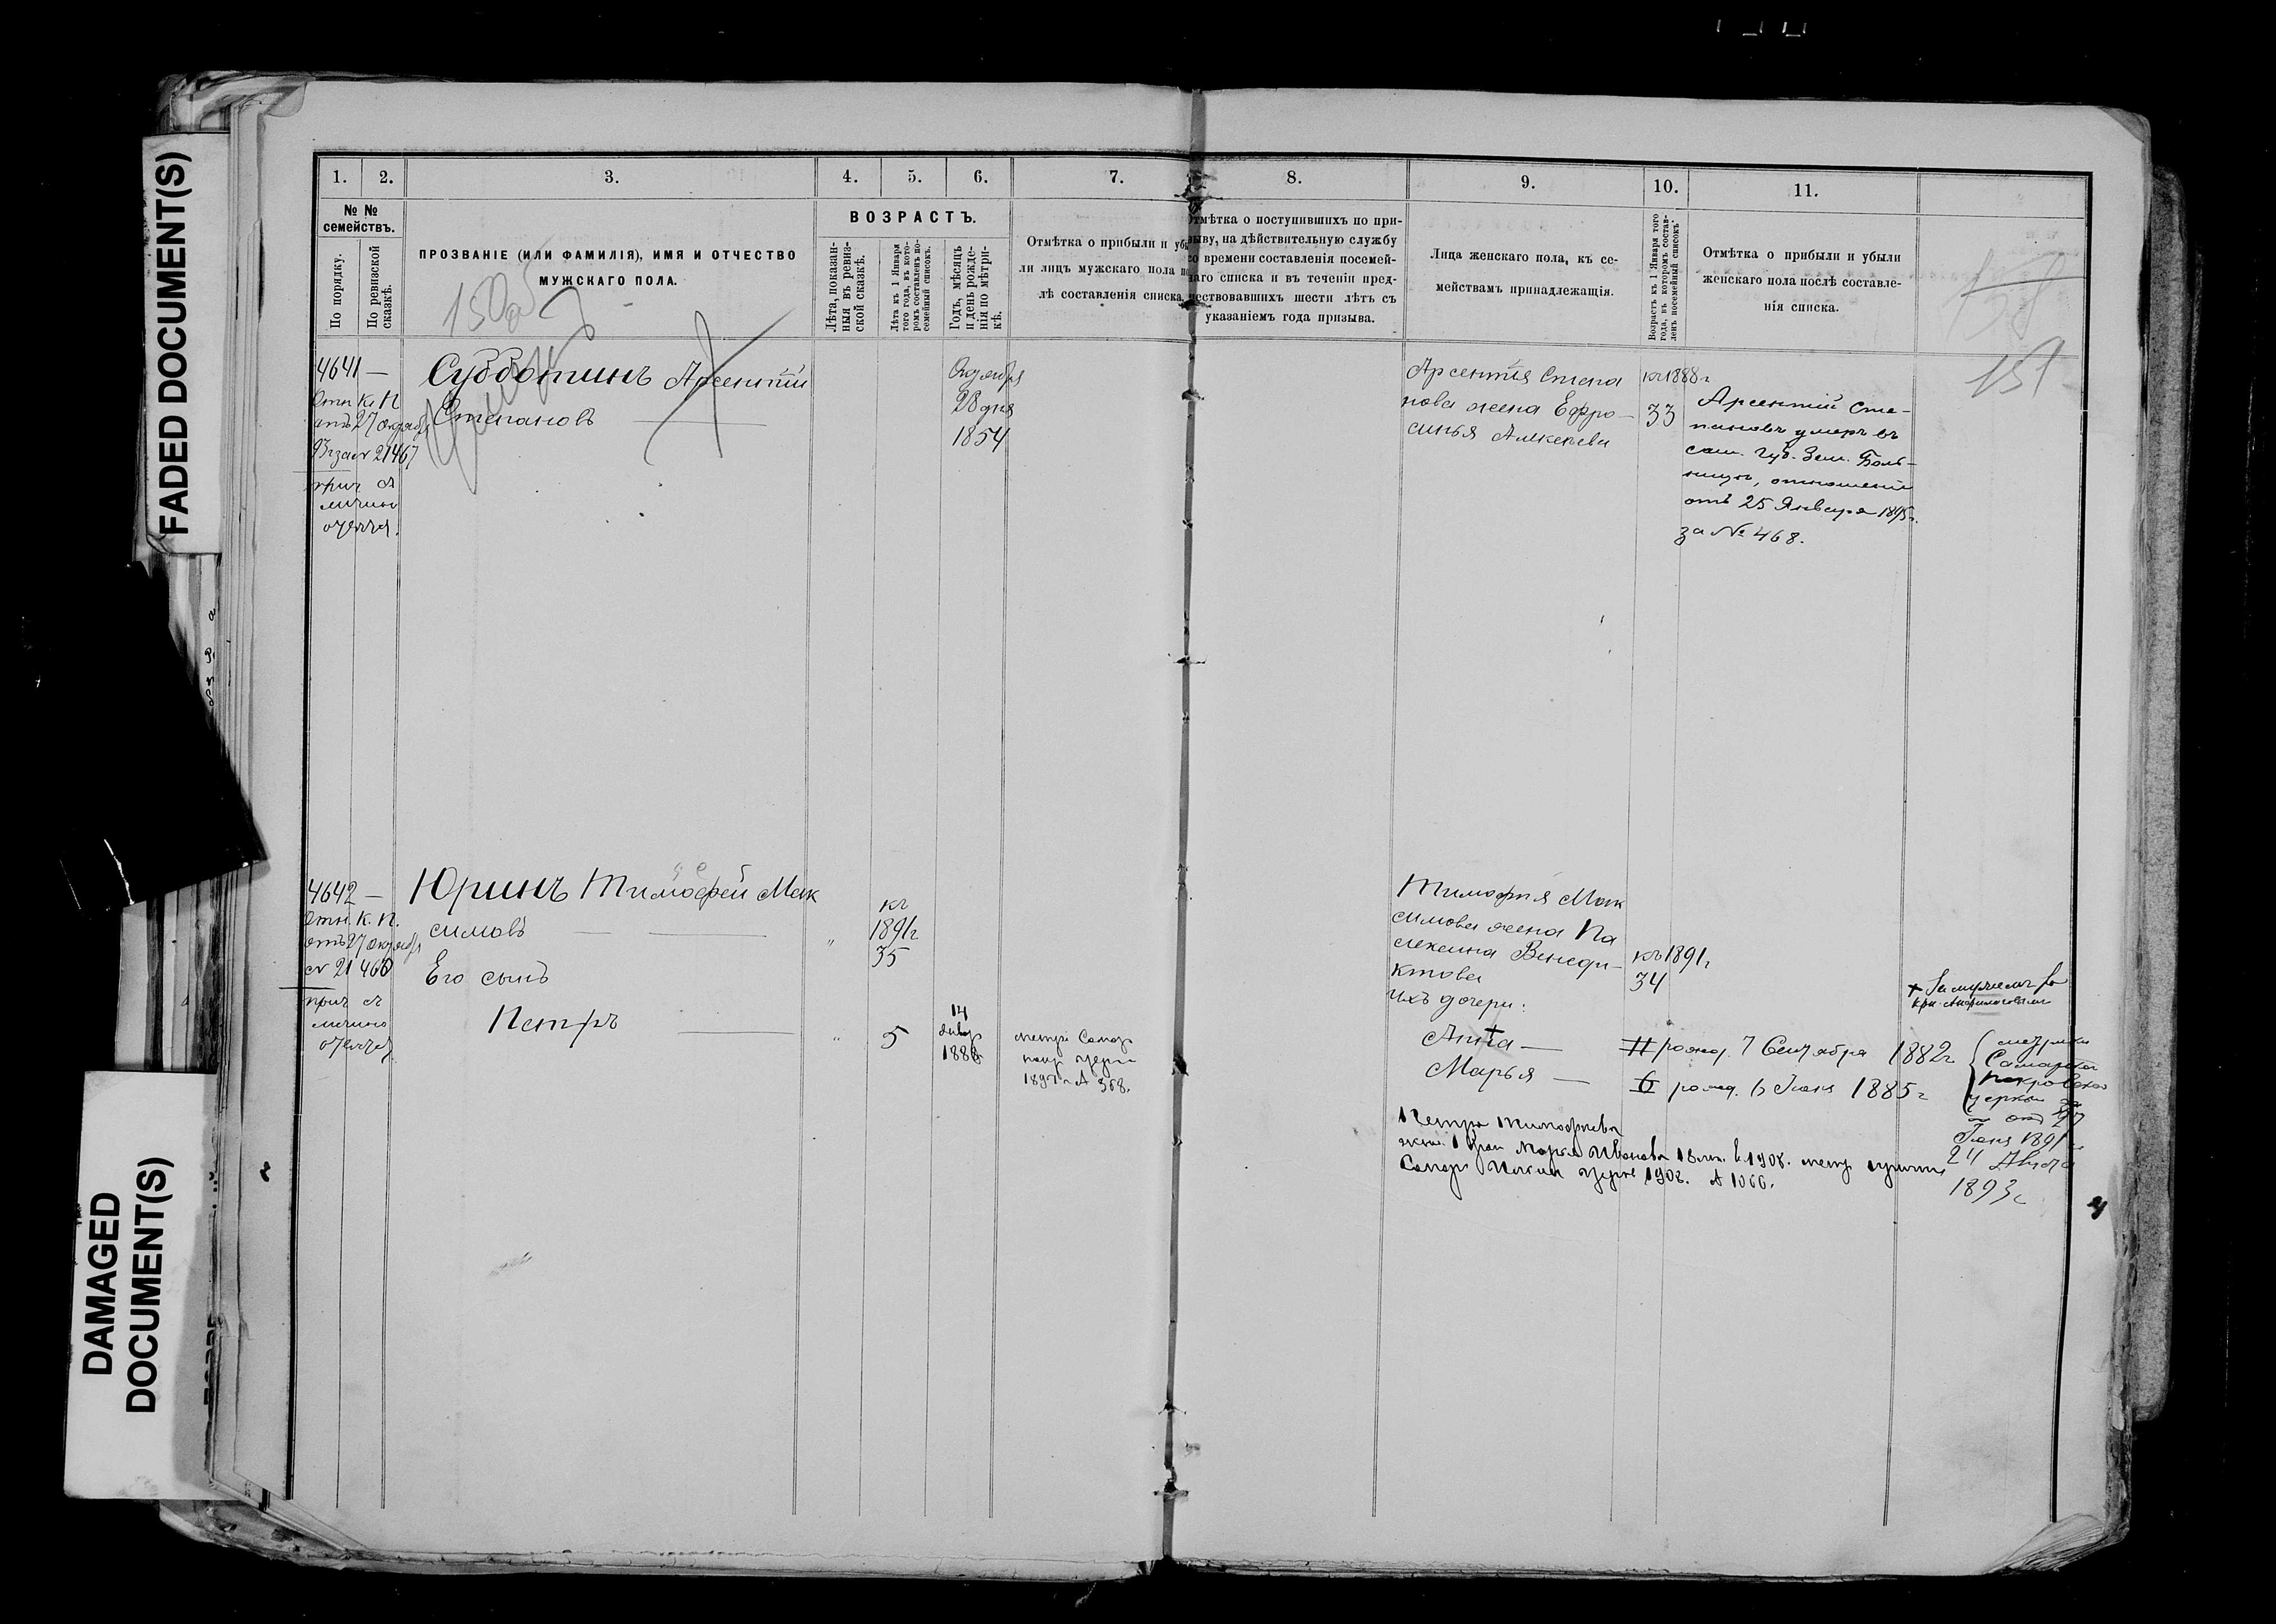 FADED DOCUMENT(S)
DAMAGED
DOCUMENT(S)
1.
2.
3.
4.
5.
6.
7.
8.
9.
10.
11.
№ №
семействъ.
По порядку.
По ревизской
сказкѣ.
ПРОЗВАНІЕ (ИЛИ ФАМИЛІЯ), ИМЯ И ОТЧЕСТВО
МУЖСКАГО ПОЛА.
ВОЗРАСТЪ.
Лѣта, показан-
ныя въ ревиз-
ской сказкѣ.
Лѣта къ 1 Января
того года, въ кото-
ромъ составленъ по-
семейный списокъ.
Годъ, мѣсяцъ
и день рожде-
нія по мѣтри-
кѣ.
Отмѣтка о прибыли и убы
ли лицъ мужскаго пола по
лѣ составленія списка.
Отмѣтка о поступившихъ по при-
зыву, на дѣйствительную службу
со времени составленія посемей-
наго списка и въ теченіи пред-
шествовавшихъ шести лѣтъ съ
указаніемъ года призыва.
Лица женскаго пола, къ се-
мействамъ принадлежащія.
Возрастъ къ 1 Января того
года, въ которомъ состав-
ленъ посемейный списокъ.
Отмѣтка о прибыли и убыли
женскаго пола послѣ составле-
нія списка.
151
4641 —
Отн. К. П.
отъ 27 октября
за № 21467
прич. съ
Субботинъ Арсентій
Степановъ
Октября
28 дня
1854
Арсентія Степа
нова жена Ефро-
синья Алексѣева
къ 1888 г
33
Арсентій Сте-
пановъ умеръ въ
сам. Губ. Зем. Боль-
ницѣ, отношеніе
отъ 25 Января 1895 г.
за № 468.
4642 —
Отн. К. П.
отъ 27 октября
№ 21468
прич. съ
Юринъ Тимофей Мак
симовъ
Его сынъ
Петръ
къ
1891 г
35
5
14
Январ
188
метри Самар
церк
№ 368.
Тимофея Мак
симова жена Пе
лагеина Венеди-
ктова
ихъ дочери:
Анна —
Марья —
къ 1891 г
34
11 рожд. 7 Сентября 1882 г.
6 рожд. Іюня 1885 г
Самарской
Покровской
церкви
Іюня 1891
24
1893 г
Петра Тимофеева
жена Марья Иванова 18 лѣт. въ 1908.
Самар церкв 1908. № 1066.